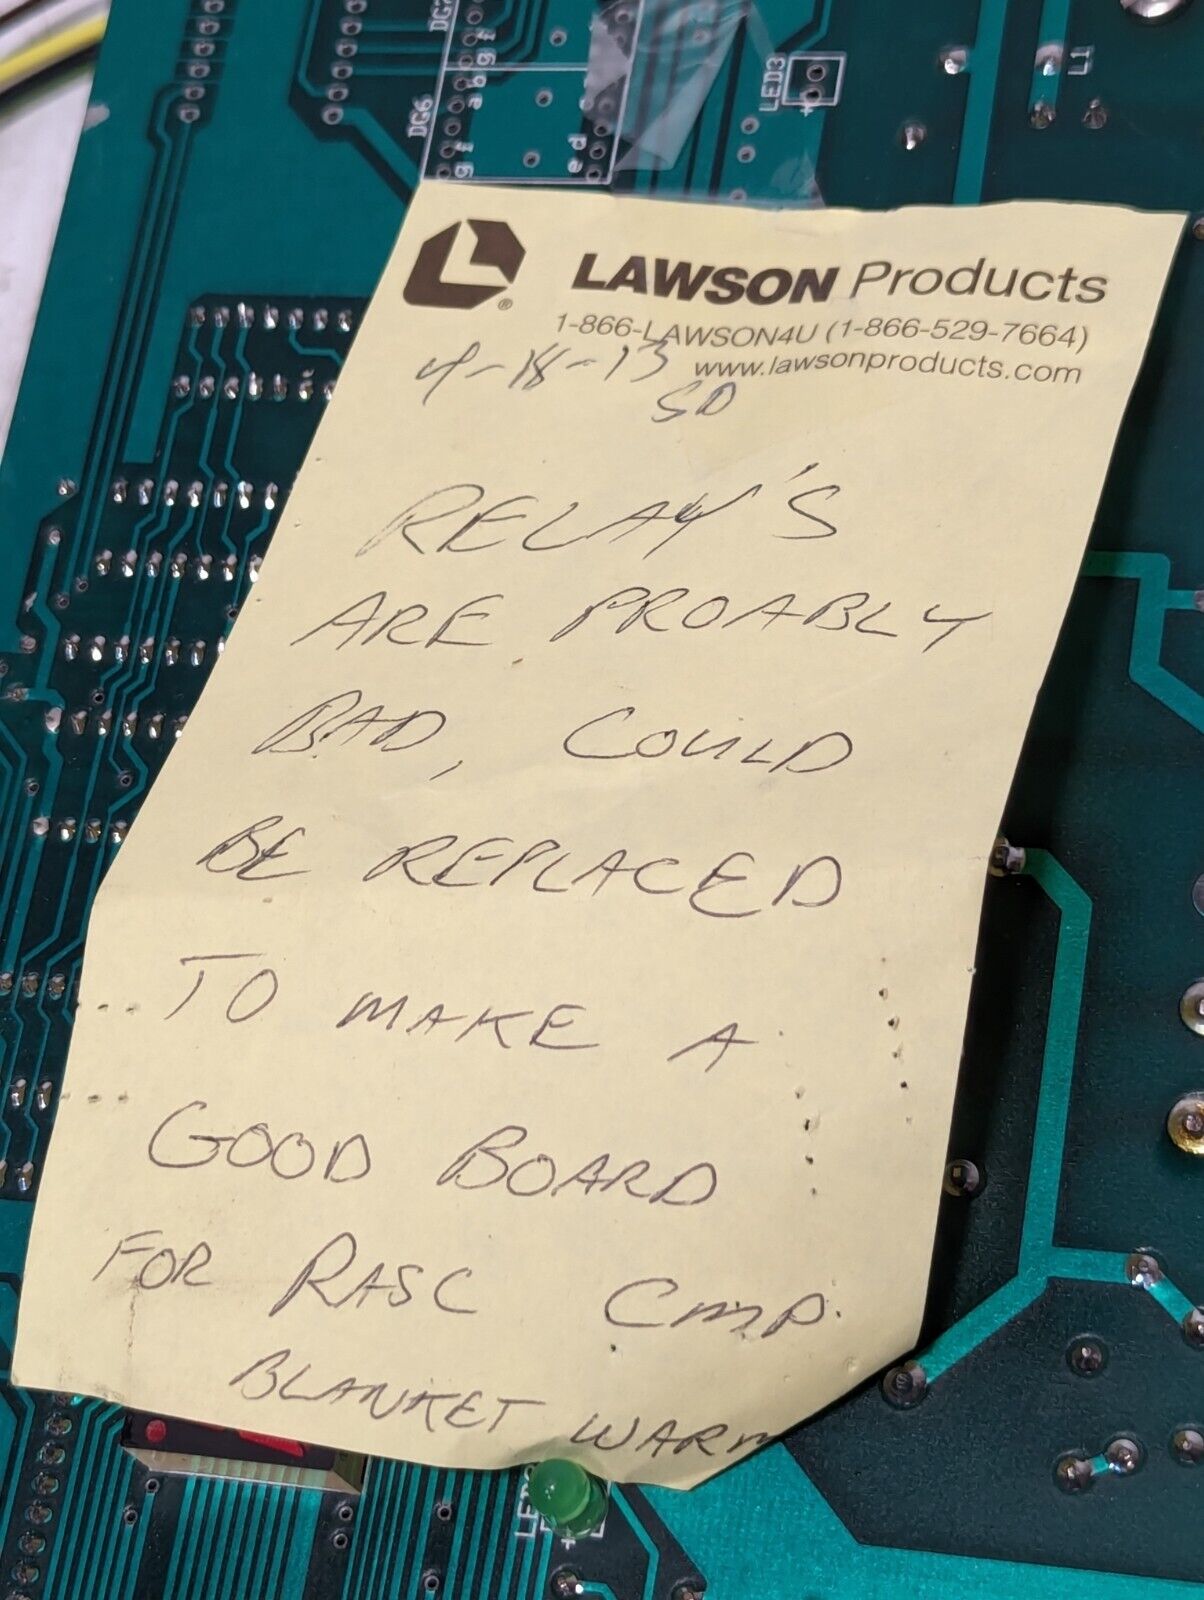 DG7
a b g f
DG6
g f
c
e d
LED3
+
L1
LAWSON Products
®
1-866-LAWSON4U (1-866-529-7664)
www.lawsonproducts.com
4-18-13
SD
RELAY'S
ARE PROABLY
BAD, COULD
BE REPLACED
TO MAKE A
GOOD BOARD
FOR RASC CMP.
BLANKET WARM
LED
+